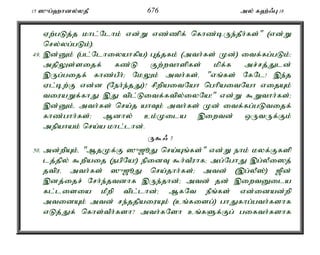 15 ஸுப்ஹானல்லதீ 676 அல் கஹ்ஃபு 18
ஏற்படுத்த மாட்டோம் என்று எண்ணிக் கொண்டிருந்தீர்கள்" (என்று
சொல்லப்படும்)
49. இன்னும் (பட்டோலையாகிய) புத்தகம் (அவர்கள் முன்) வைக்கப்படும்;
அதிலுள்ளதைக் கண்டு குற்றவாளிகள் மிக்க அச்சத்துடன்
இருப்பதைக் காண்பீர்; மேலும் அவர்கள், "எங்கள் கேடே! இந்த
ஏட்டிற்கு என்ன (நேர்ந்தது)! சிறியவையோ பெரியவையோ எதையும்
வரையறுக்காது இது விட்டுவைக்கவில்லையே" என்று கூறுவார்கள்;
இன்னும், அவர்கள் செய்த யாவும் அவர்கள் முன் வைக்கப்படுவதைக்
காண்பார்கள்; ஆனால் உம்முடைய இறைவன் ஒருவருக்கும்
அநியாயம் செய்ய மாட்டான்.
ருகூஃ 7
50. அன்றியும், "ஆதமுக்கு ஸுஜூது செய்யுங்கள்" என்று நாம் மலக்குகளி
டத்தில் கூறியதை (நபியே!) நினைவு கூர்வீராக; அப்போது இப்லீஸைத்
தவிர, அவர்கள் ஸுஜூது செய்தார்கள்; அவன் (இப்லீஸ்) ஜின்
இனத்தைச் சேர்ந்தவனாக இருந்தான்; அவன் தன் இறைவனுடைய
கட்டளையை மீறி விட்டான்; ஆகவே நீங்கள் என்னையன்றி
அவனையும் அவன் சந்ததியரையும் (உங்களைப்) பாதுகாப்பவர்களாக
எடுத்துக் கொள்வீர்களா? அவர்களோ உங்களுக்குப் பகைவர்களாக